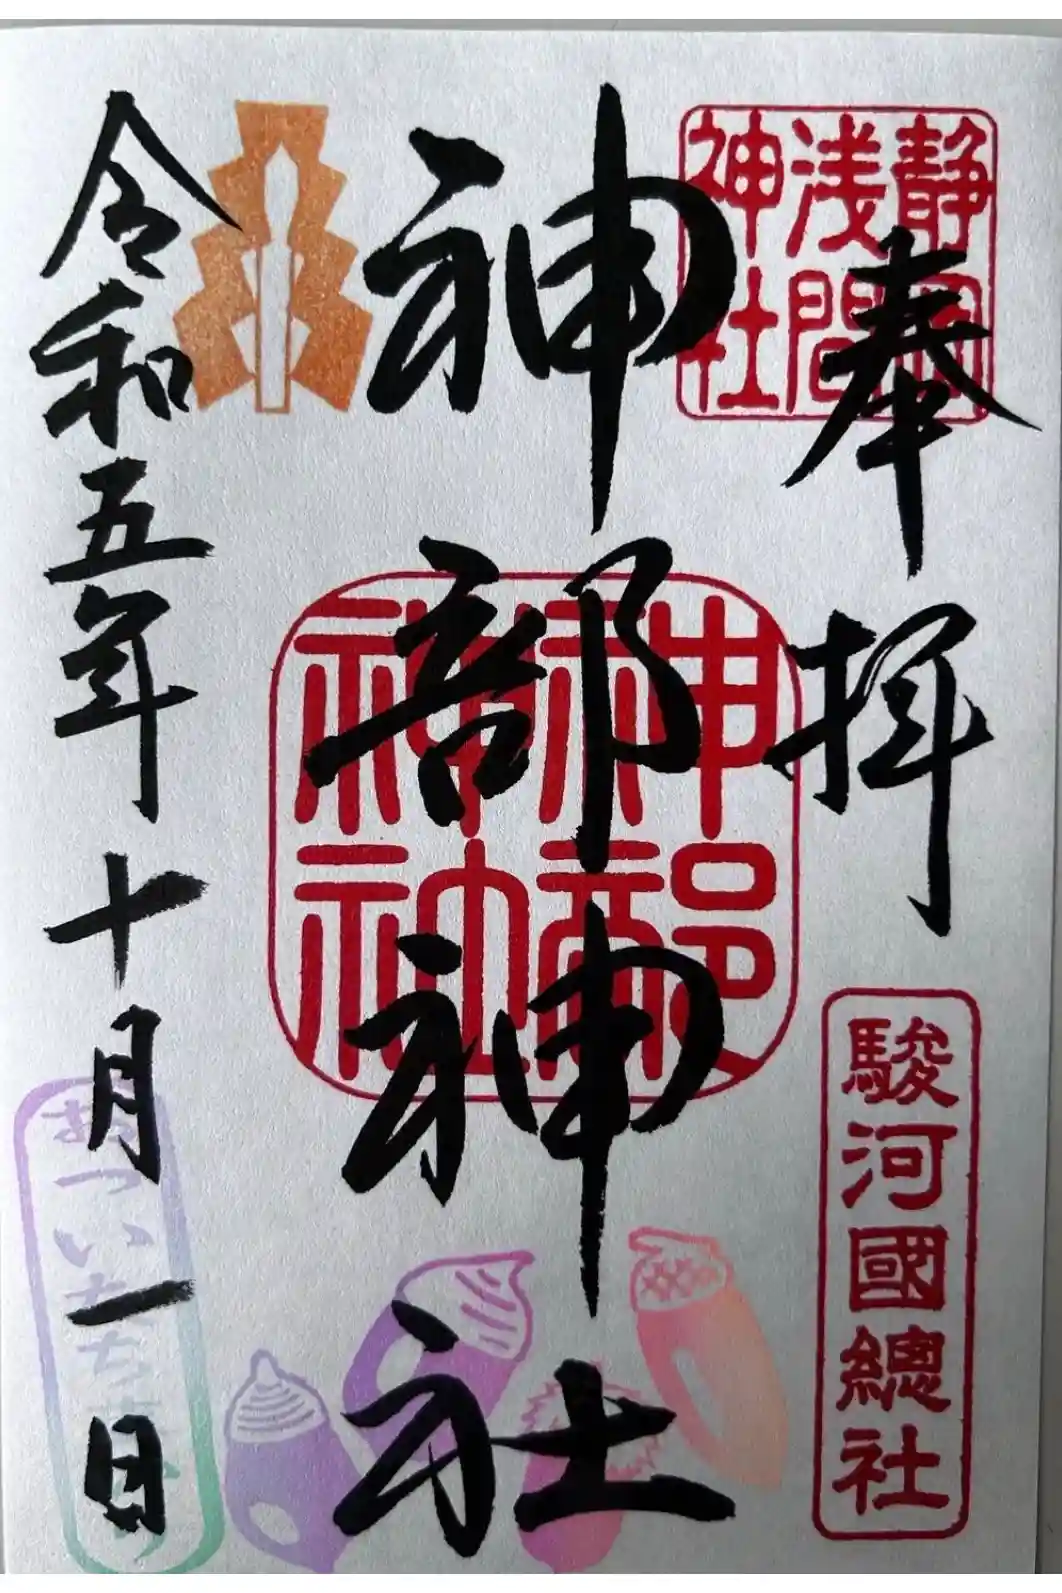 奉拝
静岡浅間神社
駿河國總社
神部神社
神部神社
令和五年十月一日
おついたち